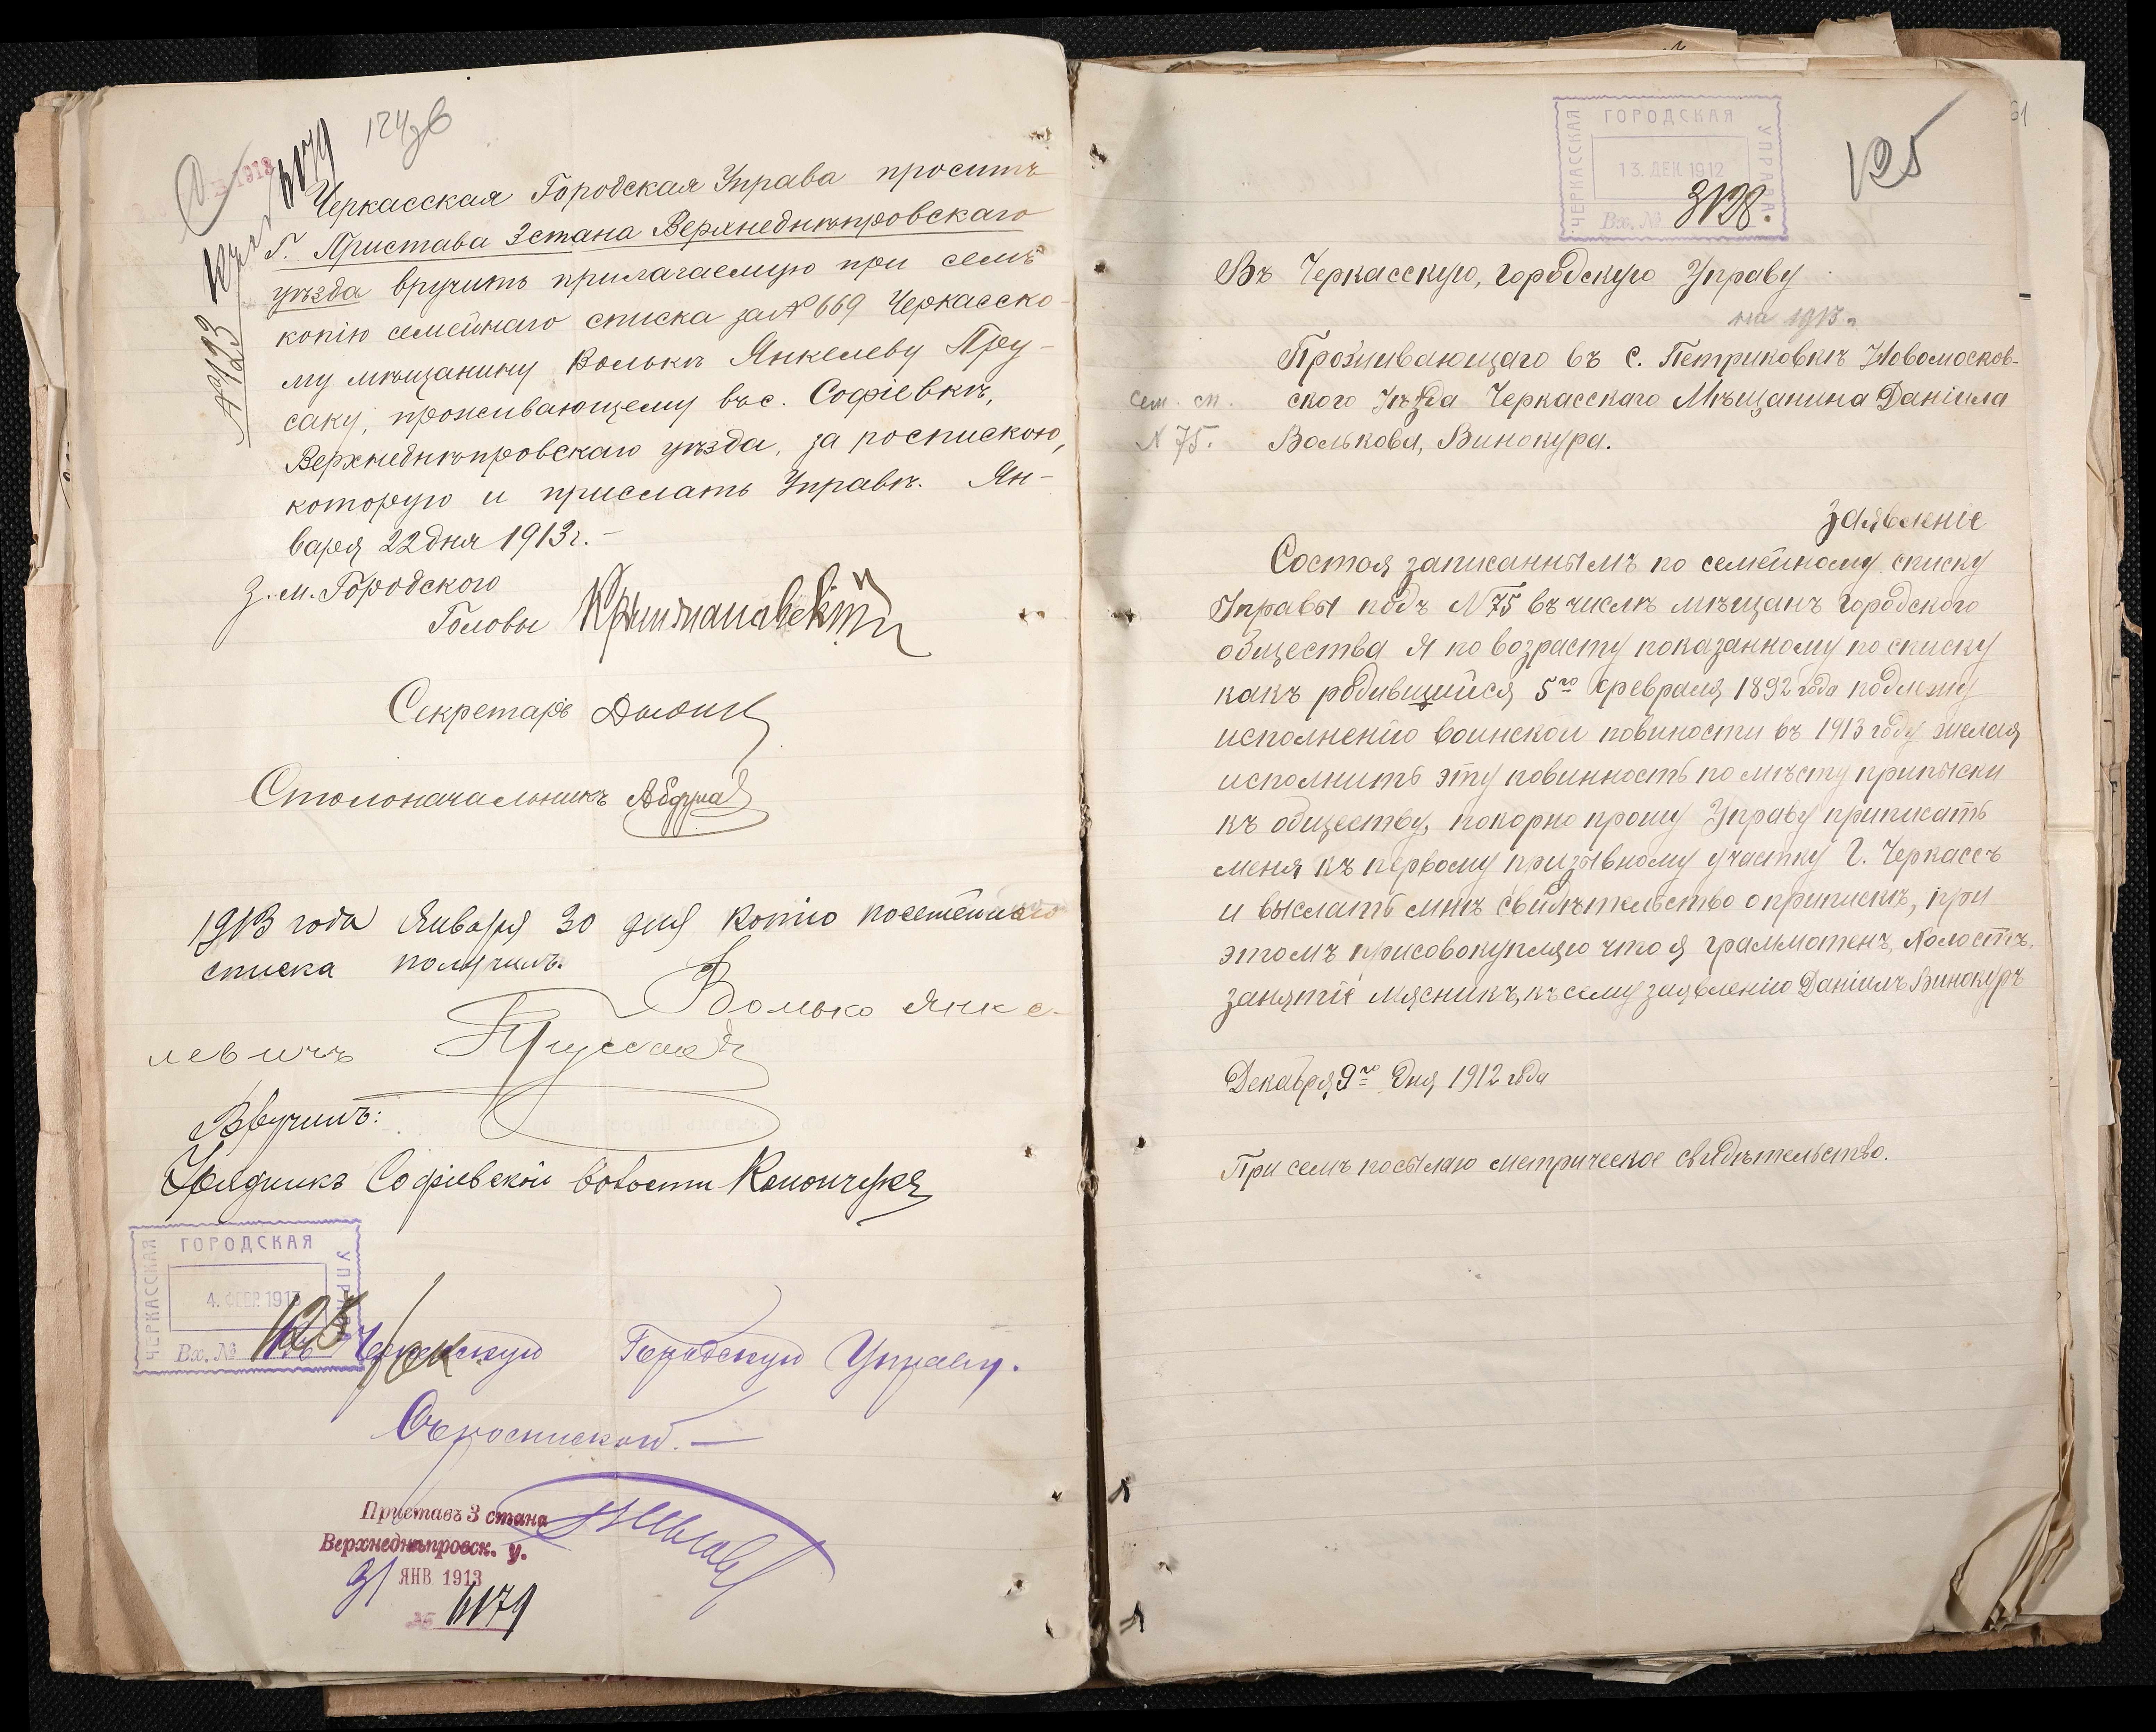 124 об
1913
6179
№ 123
Черкасская Городская Управа проситъ
Г. Пристава 3 стана Верхнеднѣпровскаго
уѣзда вручить прилагаемую при семъ
копію семейнаго списка за № 669 Черкасско-
му мѣщанину Волькѣ Янкелеву Пру-
саку, проживающему въ с. Софіевкѣ,
Верхнеднѣпровскаго уѣзда, за роспискою,
которую и прислать Управѣ. Ян-
варя 22 дня 1913 г. —
З. м. Городского
Головы
Секретарь
Столоначальникъ
1913 года Января 30 дня копію посемейнаго
списка получилъ.
Волько Янке-
левичъ Прусакъ
Вручилъ:
Урядникъ Софіевской волости
ЧЕРКАССКАЯ ГОРОДСКАЯ УПРАВА
4. ФЕВР. 1913
Вх. №
Въ Черкасскую Городскую Управу.
Съ роспиской. —
Приставъ 3 стана
Верхнеднѣпровск. у.
31 ЯНВ. 1913
№ 6179
ЧЕРКАССКАЯ ГОРОДСКАЯ УПРАВА
13. ДЕК. 1912
Вх. № 3128.
125
61
Въ Черкасскую, городскую Управу
на 1913 г.
Проживающаго въ с. Петриковкѣ Новомосков-
ского Уѣзда Черкасскаго Мѣщанина Даніила
Волькова, Винокура.
Сем. сп.
N 75.
Заявленіе
Состоя записаннымъ по семейному списку
Управы подъ N 75 въ числѣ мѣщанъ городского
общества я по возрасту показанному по списку
какъ родившийся 5го февраля 1892 года подлежу
исполненію воинской повиности въ 1913 году желая
исполнить эту повинность по мѣсту приписки
къ обществу, покорно прошу Управу приписать
меня къ первому призывному участку г. Черкассъ
и выслать мнѣ свидѣтельство о припискѣ, при
этомъ присовокупляю что я грамотенъ, холостъ,
занятіе мясникъ, къ сему заявленію Даніилъ Винокуръ
Декабря 9го дня 1912 года
При семъ посылаю метрическое свидѣтельство.